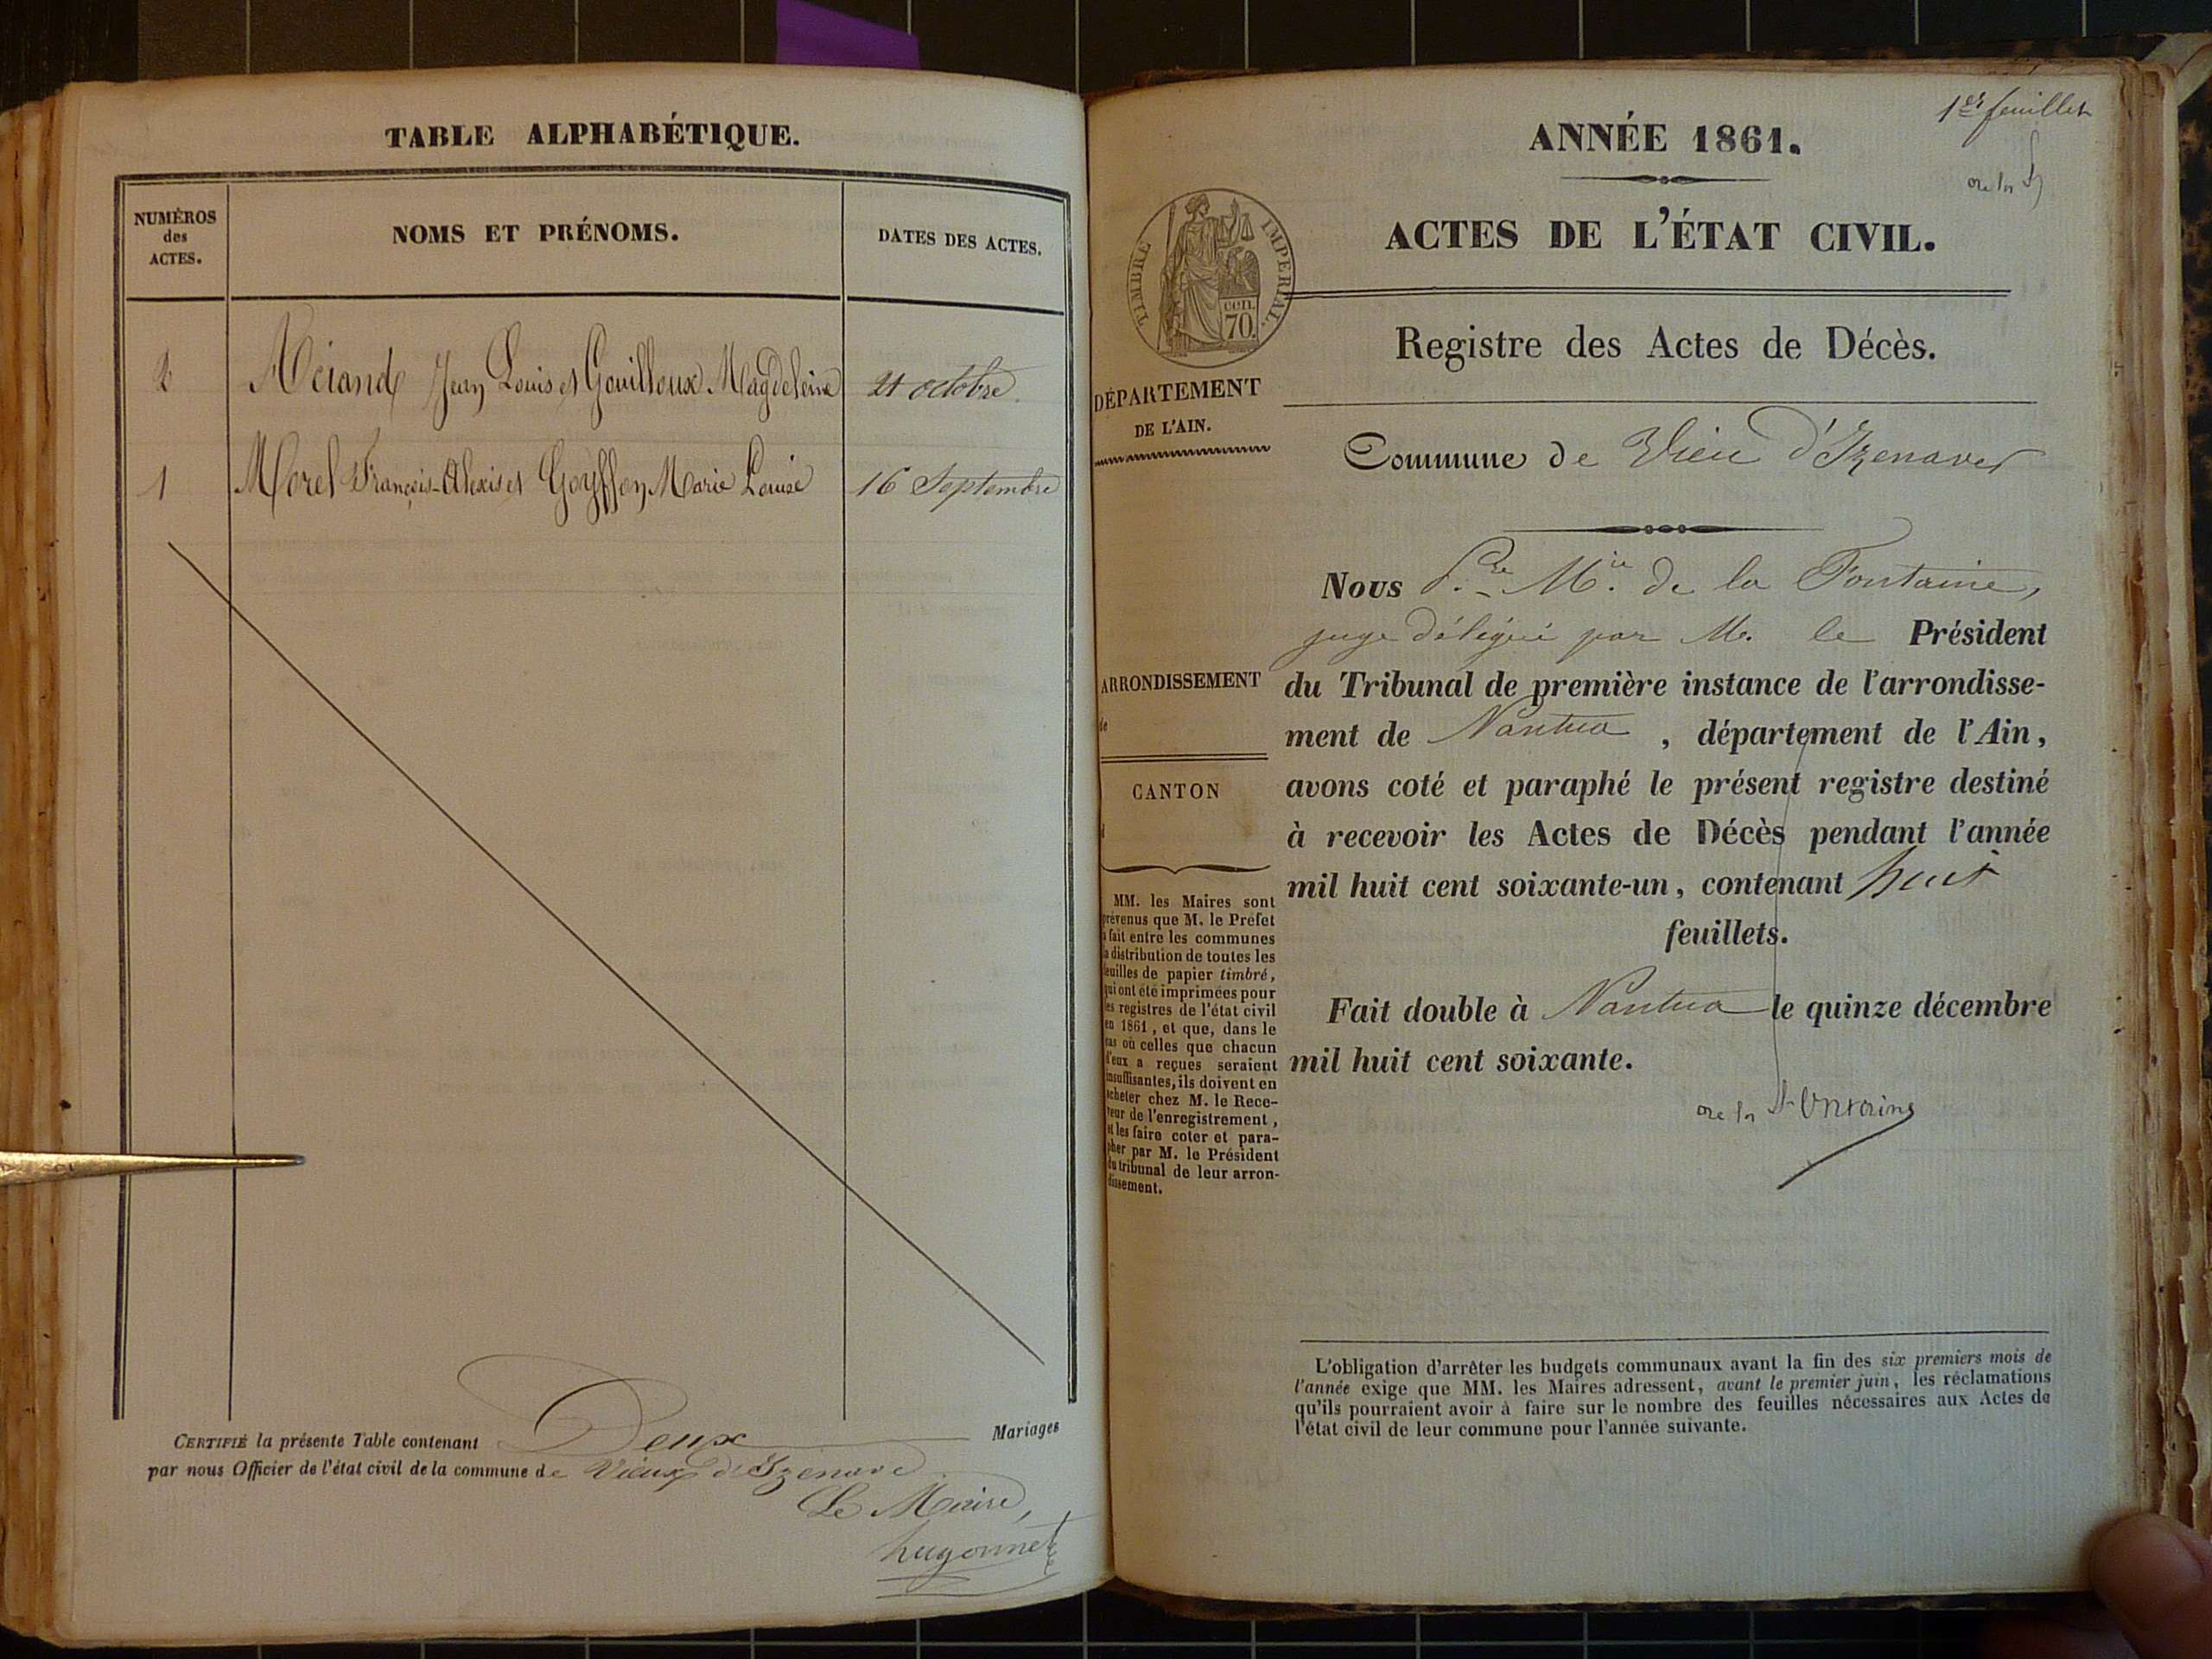 TABLE ALPHABÉTIQUE.
NUMÉROS
des
ACTES.
NOMS ET PRÉNOMS.
DATES DES ACTES.
2 Mériand Jean Louis et Gouilloux Magdeleine 21 octobre.
1 Morel François-Alexis et Goyffon Marie Louise 16 Septembre
CERTIFIÉ la présente Table contenant Deux Mariages
par nous Officier de l'état civil de la commune de Vieux d'Izenave
Le Maire,
hugonnet
1er feuillet
ANNÉE 1861.
ACTES DE L'ÉTAT CIVIL.
TIMBRE IMPERIAL.
CEN. 70.
Registre des Actes de Décès.
DÉPARTEMENT
DE L'AIN.
Commune de Vieu d'Izenave
Nous P.re M.ie de la Fontaine,
juge délégué par M. le Président
du Tribunal de première instance de l'arrondisse-
ment de Nantua, département de l'Ain,
avons coté et paraphé le présent registre destiné
à recevoir les Actes de Décès pendant l'année
mil huit cent soixante-un, contenant huit
feuillets.
Fait double à Nantua le quinze décembre
mil huit cent soixante.
de la Fontaine
ARRONDISSEMENT
de
CANTON
MM. les Maires sont
prévenus que M. le Préfet
a fait entre les communes
la distribution de toutes les
feuilles de papier timbré,
qui ont été imprimées pour
les registres de l'état civil
en 1861, et que, dans le
cas où celles que chacun
d'eux a reçues seraient
insuffisantes, ils doivent en
acheter chez M. le Rece-
veur de l'enregistrement,
et les faire coter et para-
pher par M. le Président
du tribunal de leur arron-
dissement.
L'obligation d'arrêter les budgets communaux avant la fin des six premiers mois de
l'année exige que MM. les Maires adressent, avant le premier juin, les réclamations
qu'ils pourraient avoir à faire sur le nombre des feuilles nécessaires aux Actes de
l'état civil de leur commune pour l'année suivante.